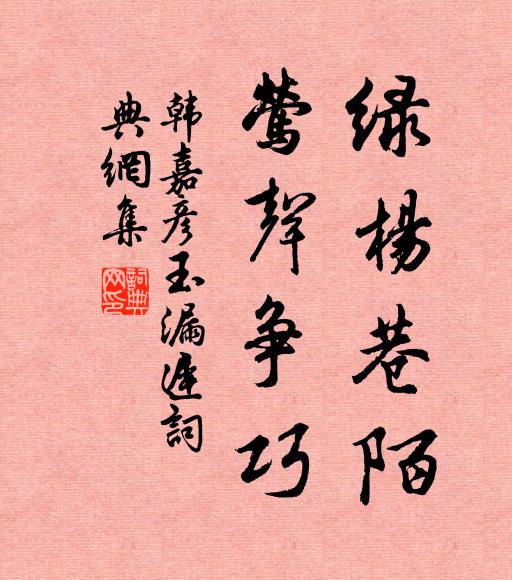 绿杨巷陌
莺声争巧
韩嘉彦玉漏迟词
典网集
词典网印